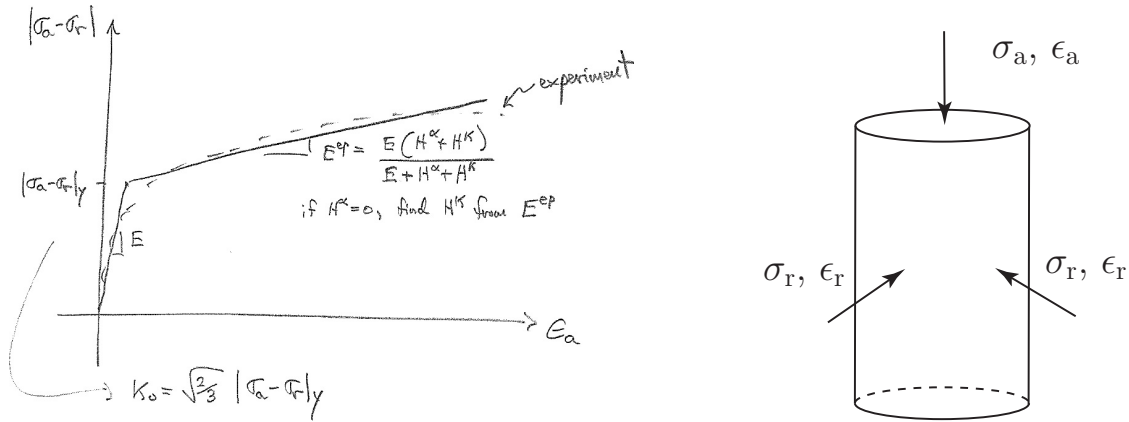 |σₐ-σᵣ|
experiment
Eᵉᵖ = E(Hᵅ+Hᴷ) / E+Hᵅ+Hᴷ
|σₐ-σᵣ|y
if Hᵅ=0, find Hᴷ from Eᵉᵖ
E
ϵₐ
K₀ = √2/3 |σₐ-σᵣ|y
σₐ, ϵₐ
σᵣ, ϵᵣ
σᵣ, ϵᵣ